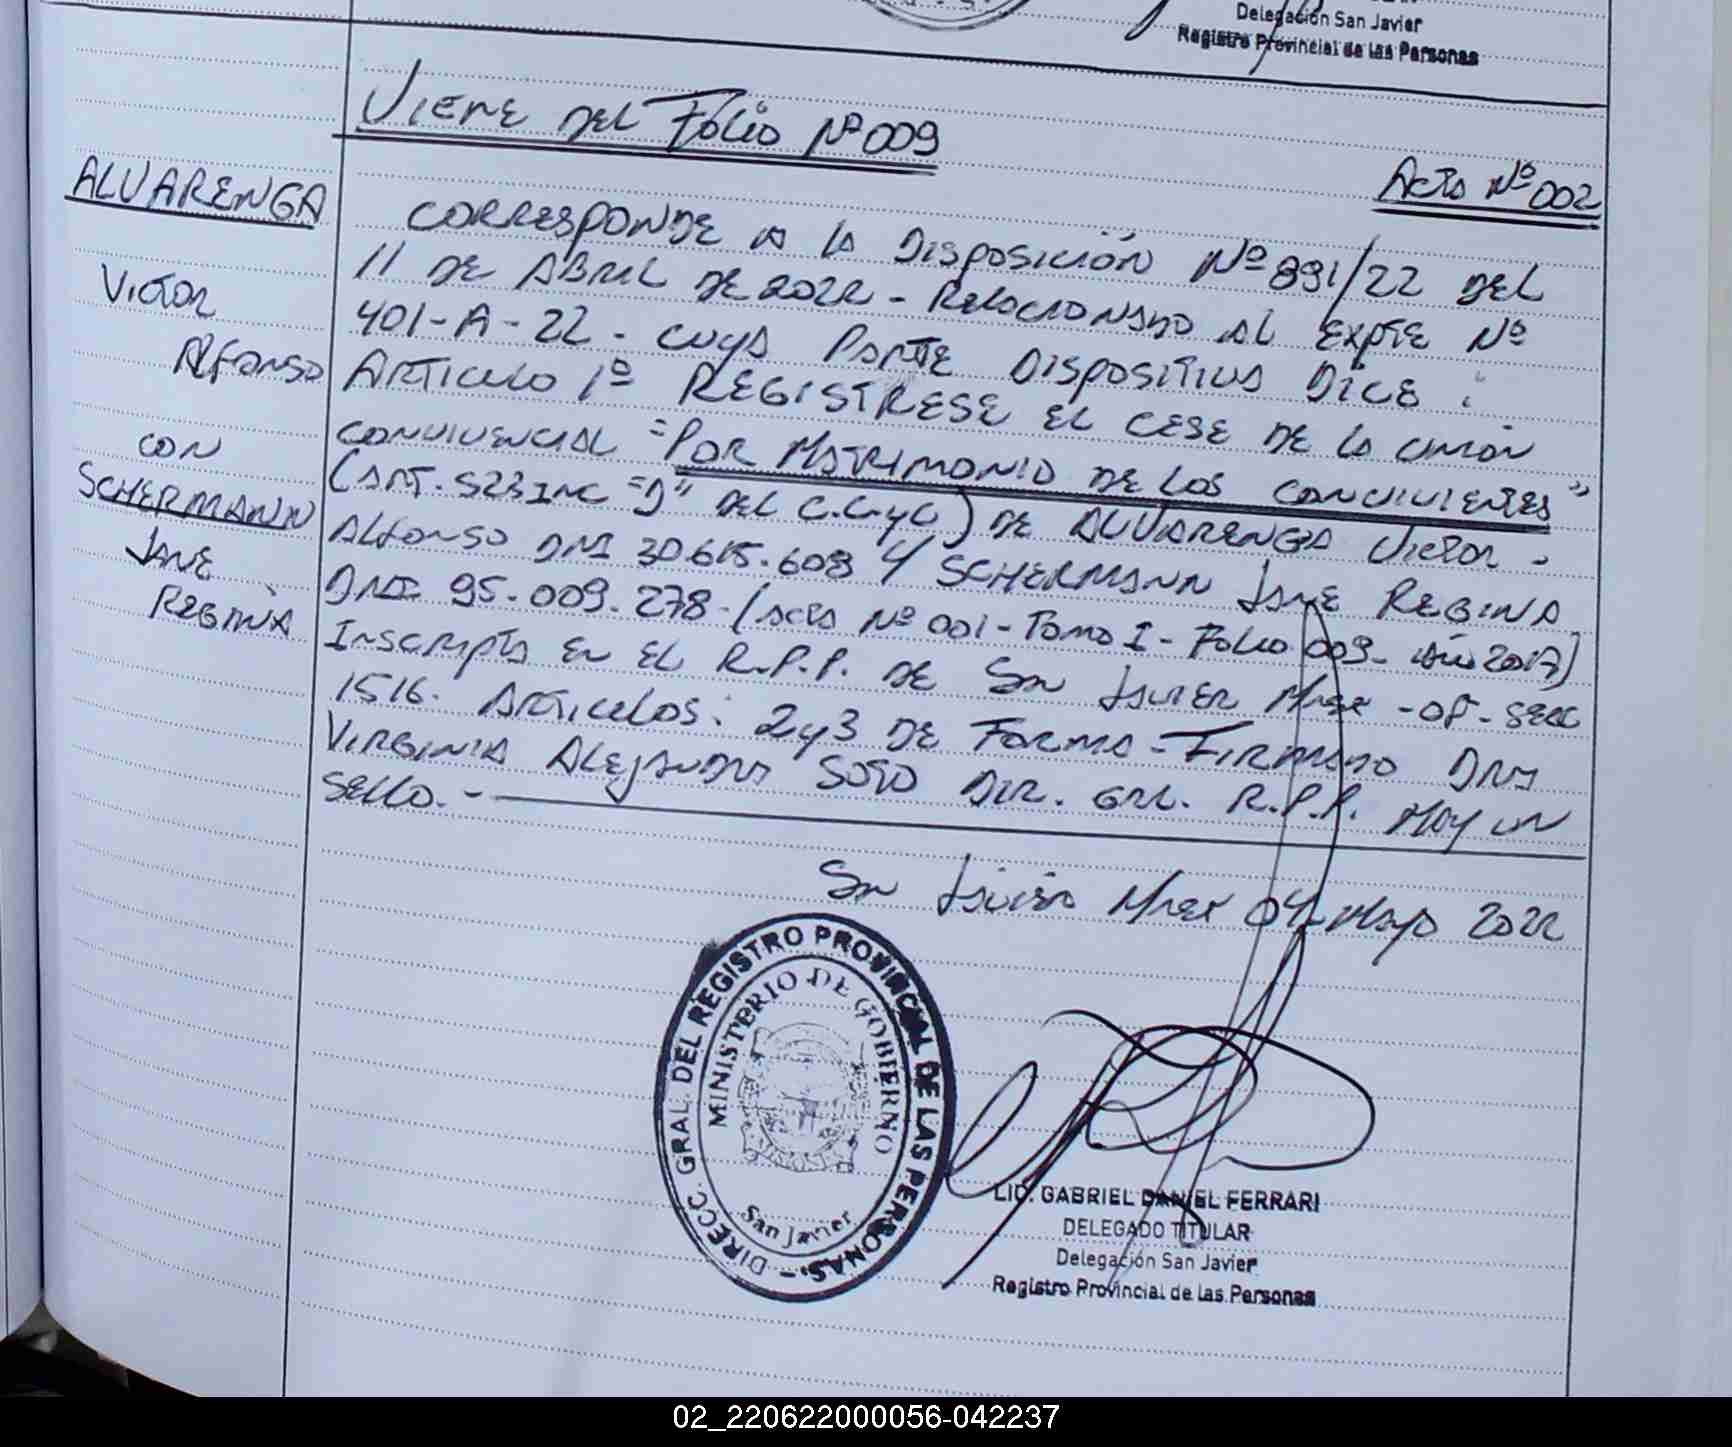 Delegación San Javier
Registro Provincial de las Personas
VIENE DEL FOLIO Nº 009
Acta Nº 002
ALVARENGA
VICTOR
Alfonso
CON
SCHERMANN
JANE
REGINA
CORRESPONDE A LA DISPOSICIÓN Nº 891/22 DEL
11 DE ABRIL DE 2022 - RELACIONADO AL EXPTE Nº
401-A-22 - CUYA PARTE DISPOSITIVA DICE :
ARTICULO 1º REGISTRESE EL CESE DE LA UNIÓN
CONVIVENCIAL "POR MATRIMONIO DE LOS CONVIVIENTES"
(ART. 523 INC "D" DEL C.C.yC) DE ALVARENGA VICTOR
ALFONSO DNI 30.615.608 Y SCHERMANN JANE REGINA
DNI 95.009.278 - (Acta Nº 001 - TOMO I - FOLIO 009 - Año 2017)
INSCRIPTA EN EL R.P.P. DE SAN JAVIER Mnes - OF - SECC
1516. ARTICULOS: 2y3 DE FORMA - FIRMADO DRA
VIRGINIA ALEJANDRA SOTO DIR. GRL. R.P.P. HAY UN
SELLO. -
San Javier Mnes 04 Mayo 2022
DIRECC. GRAL. DEL REGISTRO PROVINCIAL DE LAS PERSONAS. -
MINISTERIO DE GOBIERNO
San Javier
LIC. GABRIEL DANIEL FERRARI
DELEGADO TITULAR
Delegación San Javier
Registro Provincial de las Personas
02_220622000056-042237